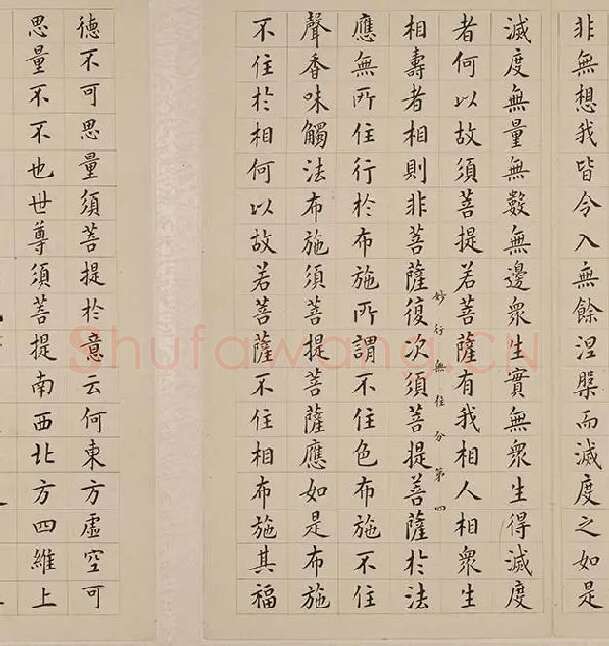 非無想我皆令入無餘涅槃而滅度之如是
滅度無量無數無邊眾生實無眾生得滅度
者何以故須菩提若菩薩有我相人相眾生
妙行無住分第四
相壽者相則非菩薩復次須菩提菩薩於法
應無所住行於布施所謂不住色布施不住
聲香味觸法布施須菩提菩薩應如是布施
不住於相何以故若菩薩不住相布施其福
德不可思量須菩提於意云何東方虛空可
思量不不也世尊須菩提南西北方四維上
Shufawang.CN